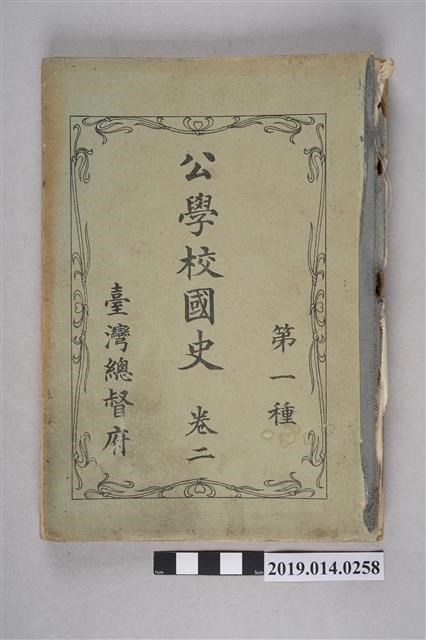 第一種
公學校國史 卷二
臺灣總督府
2019.014.0258